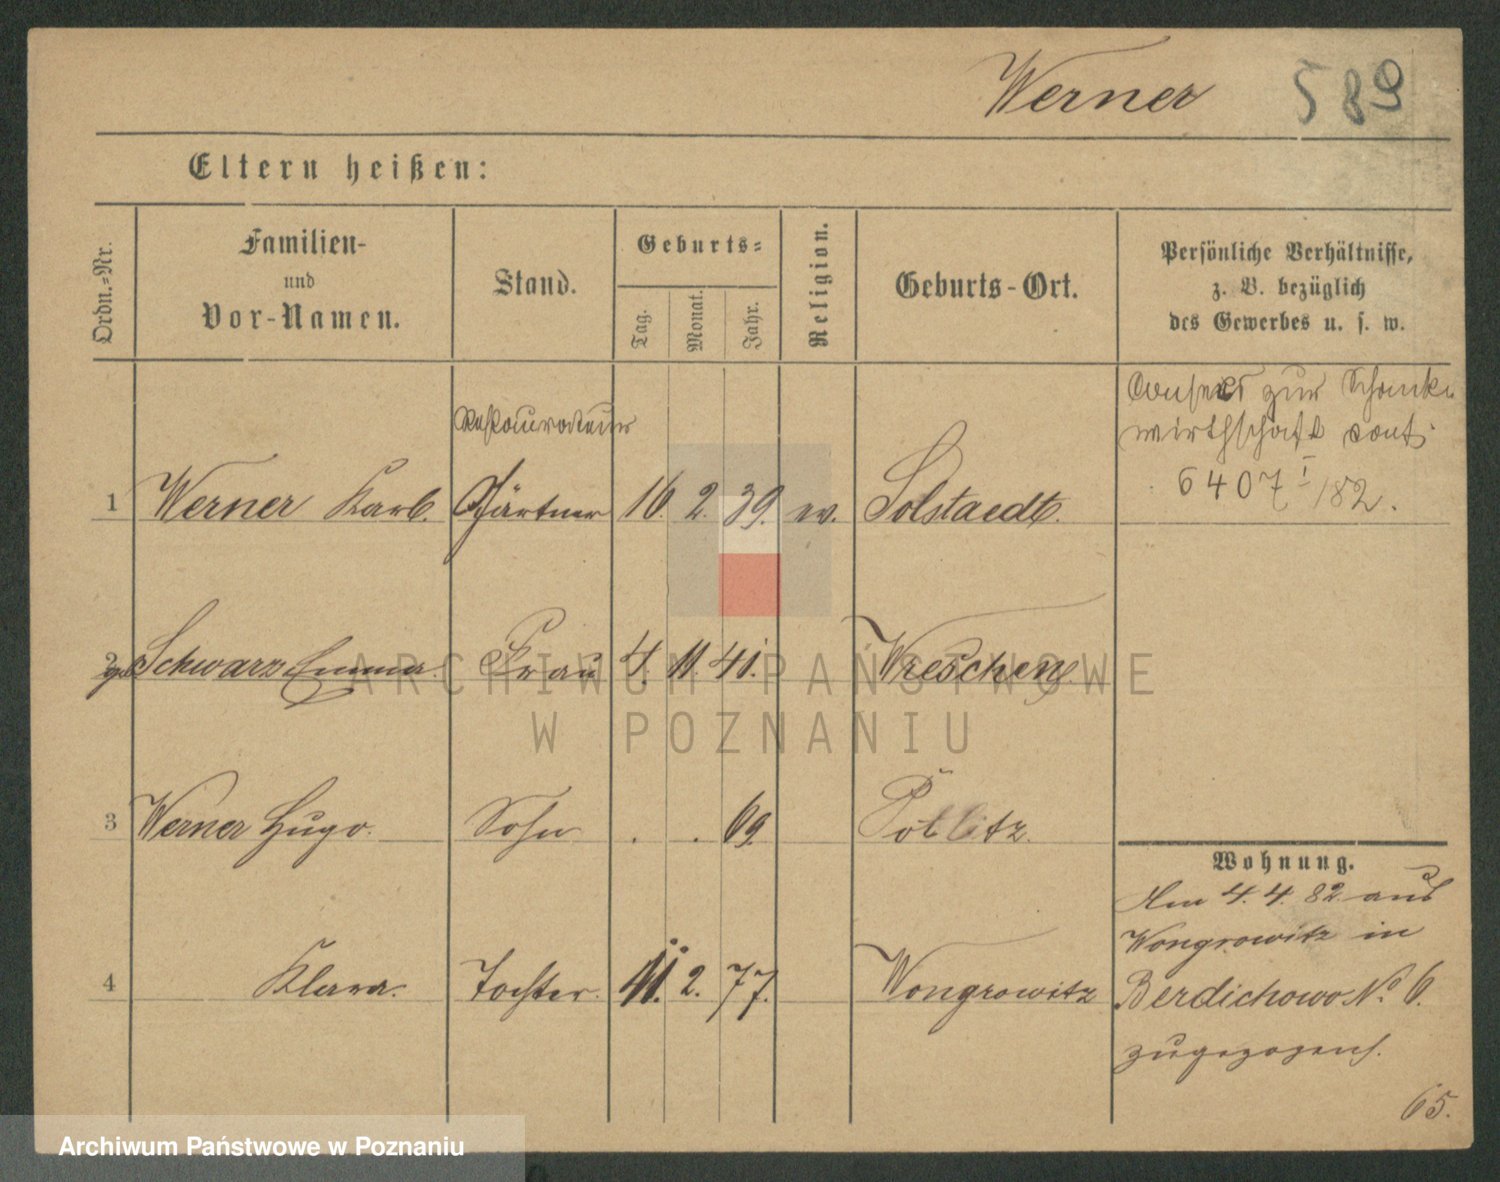 Werner 589
Eltern heißen:
Ordn.-Nr.
Familien-
und
Vor-Namen.
Stand.
Geburts-
Tag.
Monat.
Jahr.
Religion.
Geburts-Ort.
Persönliche Verhältnisse,
z. B. bezüglich
des Gewerbes u. s. w.
Consens zur Schank-
wirthschaft
6407 I/82.
Restaurateur
1 Werner Karl. Gärtner 16. 2. 39. ev.
2 Schwarz Emma. Frau 4. 11. 41. Wreschen
3 Werner Hugo. Sohn . . 69.
4 Klara. Tochter. 11. 2. 77. Wongrowitz
Wohnung.
Am 4. 4. 82 aus
Wongrowitz in
Berdichowo No. 6.
zugezogen.
65.
ARCHIWUM PAŃSTWOWE
W POZNANIU
Archiwum Państwowe w Poznaniu